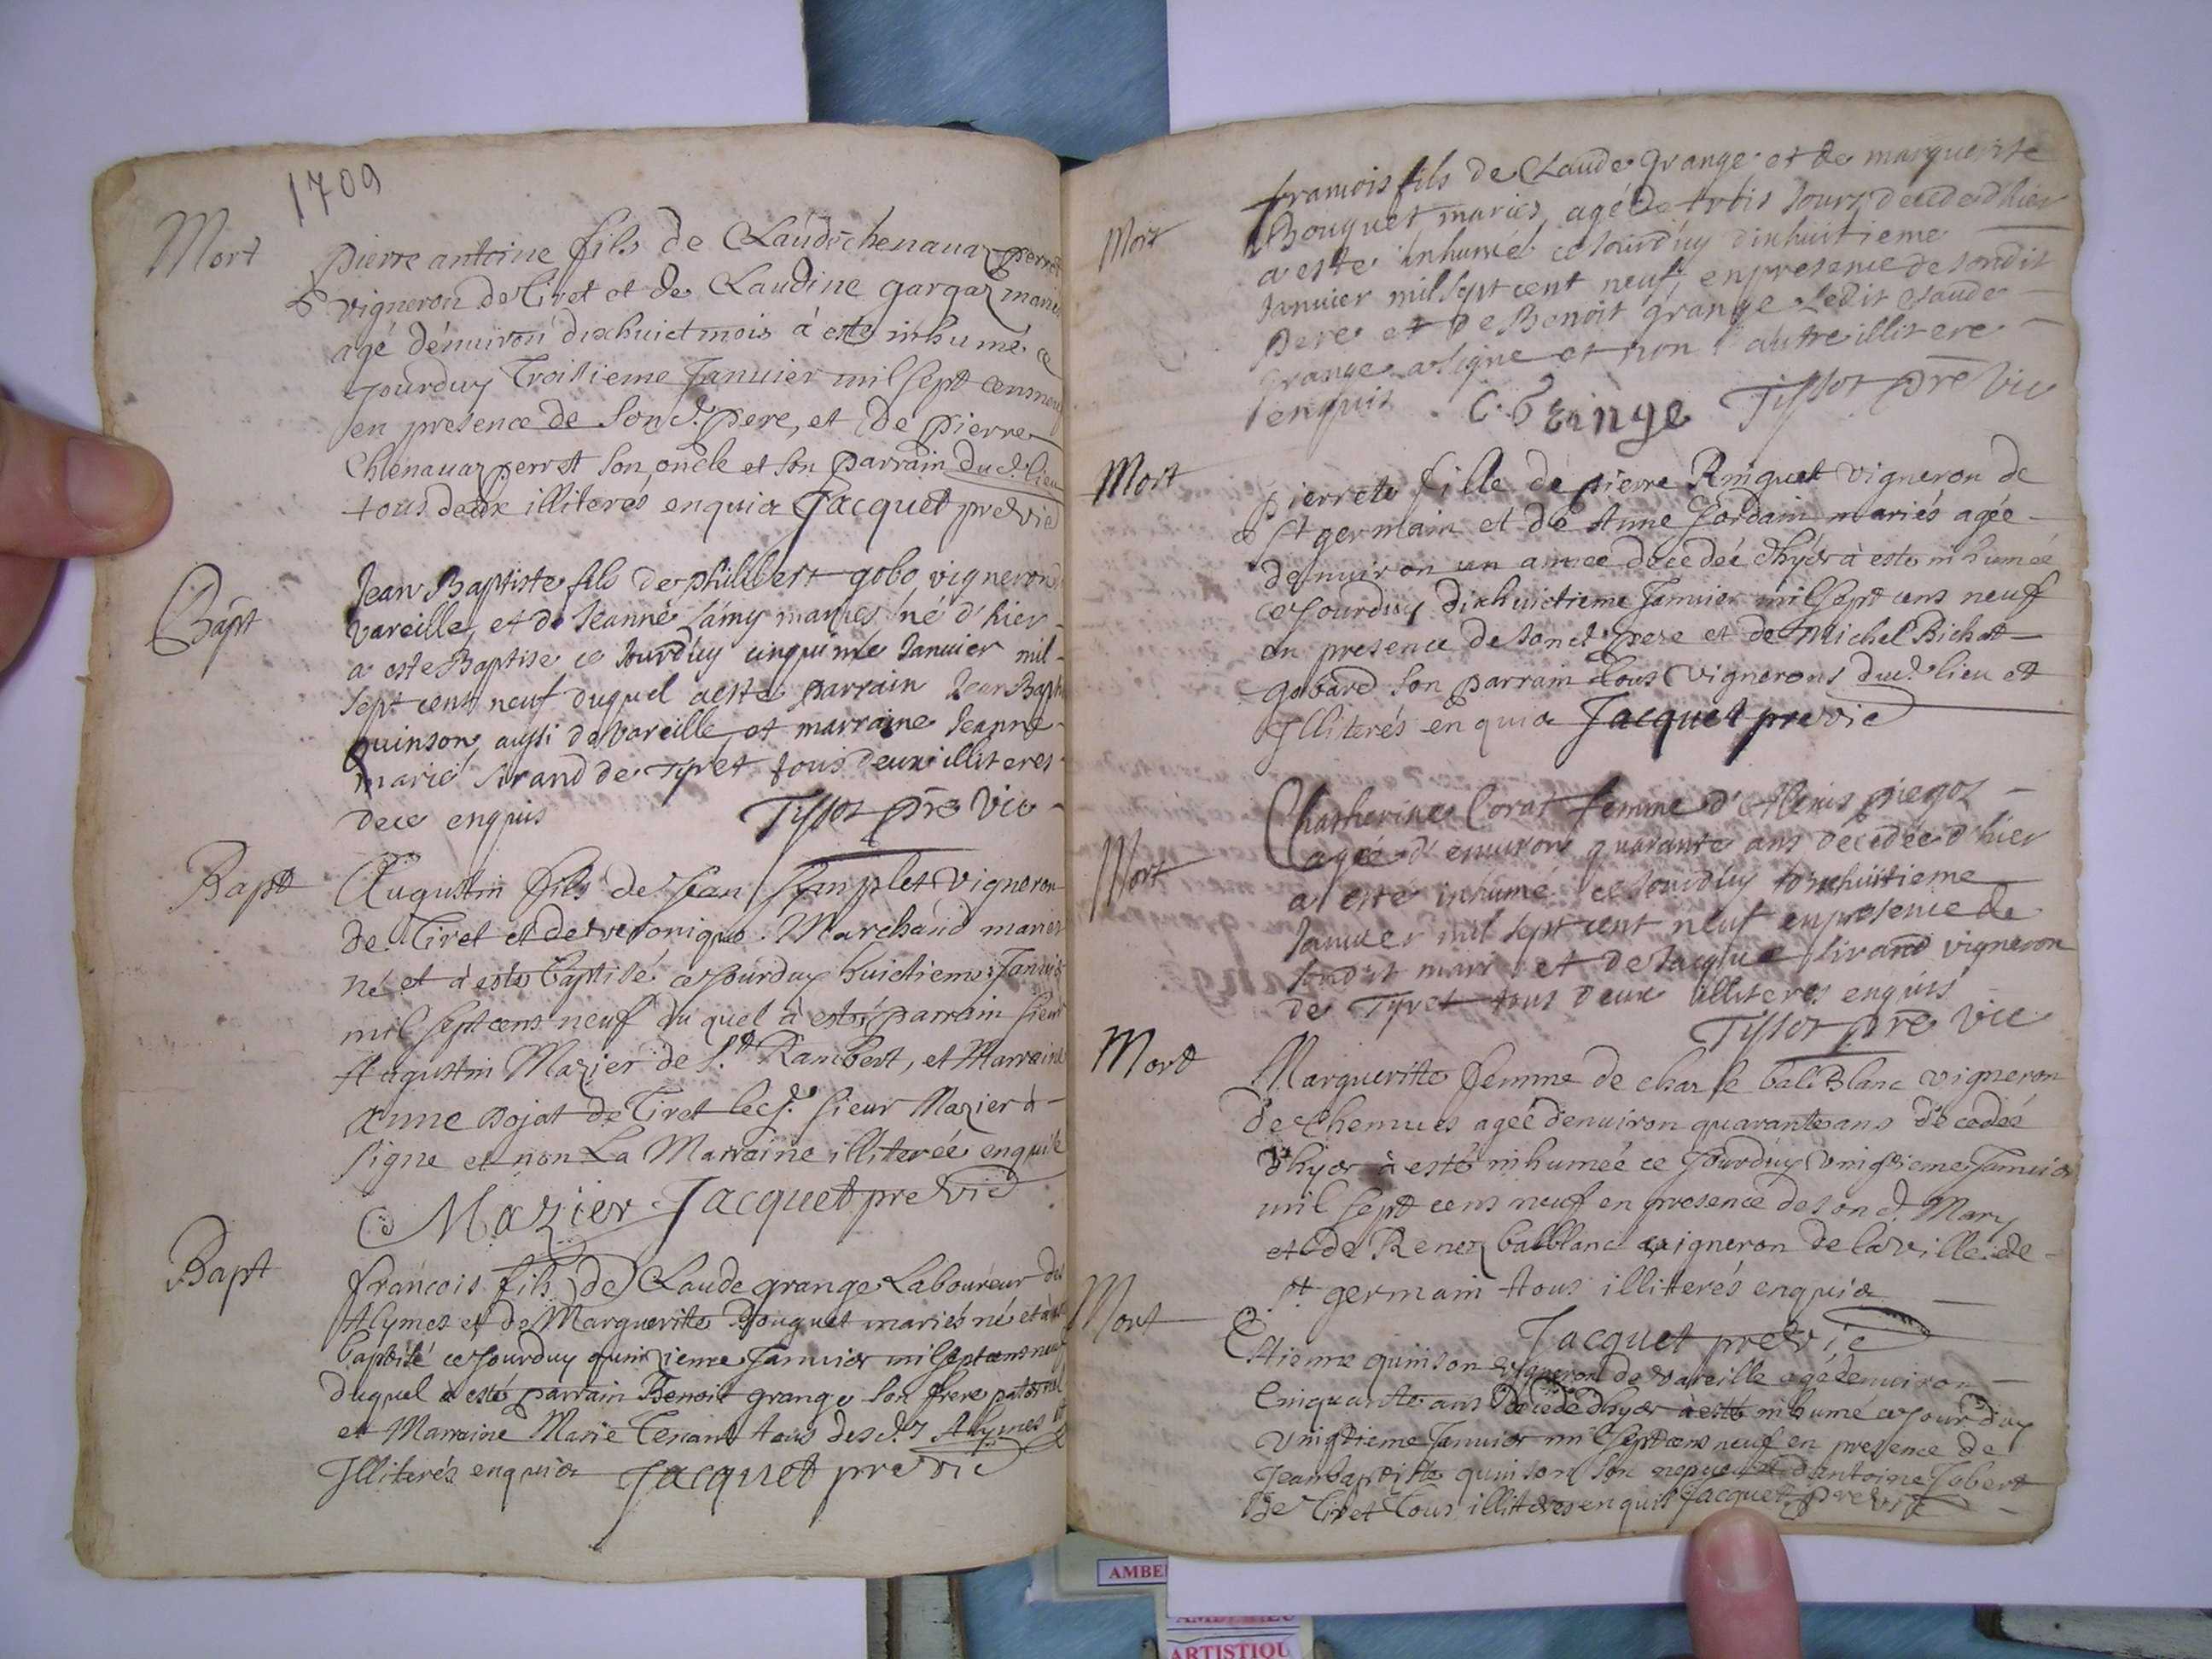 1709
Mort
Pierre antoine fils de Claude chenauaz perret
vigneron de Tiret et de Claudine gargaz mariés
agé d'enuiron dixhuict mois à esté inhumé ce
Jourduy Troisieme Januier mil sept cens neuf
en presence de son d. pere, et de pierre
Chenauaz perret son oncle et son parrain dud. lieu
tous deux illiterés enquis Jacquet pre vic
Bapt
Jean Baptiste fils de philibert gobo vigneron de
vareille, et de Jeanne Lamy mariés né d'hier
a esté Baptisé ce Jourduy cinquime Januier mil
sept cent neuf duquel a esté parrain Jean Bapt
quinson, aussi de vareille, et marraine Jeanne
marie sirand de Tyret tous deux illiteres
dece enquis Tissot pre vic
Bapt
Augustin fils de Jean Simplet vigneron
de Tiret et de veronique Marchand mariés
né et à esté baptisé ce Jourduy huictieme Januier
mil sept cens neuf du quel à esté parrain sieur
Augustin Mazier de St Rambert, et Marraine
Anne Dojat de Tiret led. sieur Mazier à
signe et non La Marraine illiterée enquise
Mazier Jacquet pre vic
Bapt
francois fils de Claude grange Laboureur des
Alymes et de Marguerite Bouguet mariés né et à esté
baptisé ce Jourduy quinzieme Januier mil sept cens neuf
duquel à esté parrain Benoit grange son frere paternel
et Marraine Marie Tenant tous des d.s Alymes
Illiterés enquis Jacquet pre vic
Mort
francois fils de Claude grange et de marguerite
Bouguet mariés, agé de trois Jours decedé d'hier
a esté inhumé ce Jourduy dixhuitieme
Januier mil sept cent neuf, en presence de sondit
pere et de Benoit grange Ledit Claude
grange a signe et non l'autre illitere
enquis C. Grange Tissot pre vic
Mort
Pierrete fille de pierre Ringuet vigneron de
St germain et de Anne Jordain mariés agée
denuiron un année decedée d'hyer à esté inhumée
ce Jourduy dixhuictieme Januier mil sept cens neuf
en presence de son d. pere et de Michel Bichat
gobard son parrain tous vignerons dud. lieu et
Illiterés enquis Jacquet pre vic
Mort
Chatherine Corat femme d'Alexis piegoz
agée d'enuiron quarante ans décedée d'hier
a esté inhumé ce Jourduy dixhuitieme
Januier mil sept cent neuf en presence de
sondit mari et de Jacque sirand vigneron
de Tyret tous deux illiteres enquis
Tissot pre vic
Mort
Margueritte femme de charle balBlanc vigneron
de Chemues agée denuiron quarante ans decedée
d'hyer à esté inhumée ce Jourduy vingtieme Januier
mil sept cens neuf en presence de son d. Mary
et de Renez balblanc vigneron de la ville de
St germain tous illiterés enquis
Jacquet pre vic
Mort
Estienne quinson vigneron de vareille agé denuiron
Cinquante ans decedé d'hyer à esté inhumé ce Jourduy
vingtieme Januier mil sept cens neuf en presence de
Jean baptiste quinson son nepueu et d'antoine Jobert
de Tiret tous illiteres enquis Jacquet pre vic
AMBE
AMBERIEU
ARTISTIQU